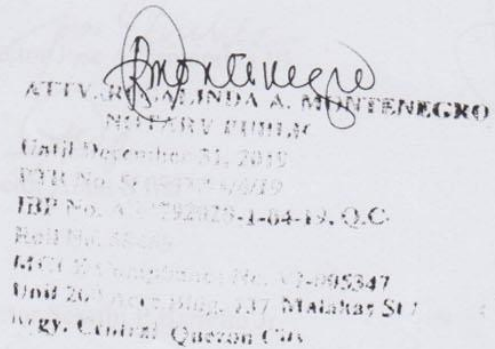 RMontenegro
ATTY. ROSALINDA A. MONTENEGRO
NOTARY PUBLIC
Until December 31, 2019
PTR No.
IBP No. -1-04-19, Q.C.
Roll No.
MCLE Compliance No. VI-005347
Unit Bldg. 137 Malakas St
Brgy. Central Quezon City